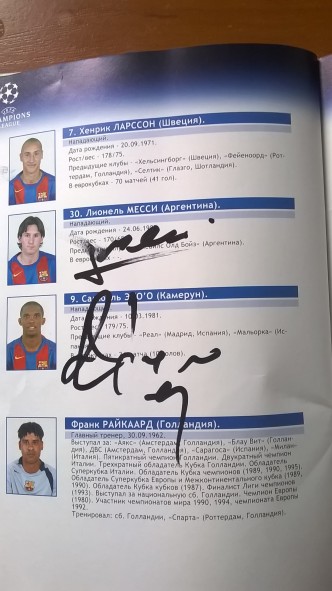 CHAMPIONS
LEAGUE
7. Хенрик ЛАРССОН (Швеция).
Нападающий.
Дата рождения - 20.09.1971.
Рост/вес - 178/75.
Предыдущие клубы - «Хельсингборг» (Швеция), «Фейеноорд» (Рот-
тердам, Голландия), «Селтик» (Глазго, Шотландия).
В еврокубках - 70 матчей (41 гол).
30. Лионель МЕССИ (Аргентина).
Нападающий.
Дата рождения - 24.06.
Рост/вес - 170/
Олд Бойз» (Аргентина).
В еврокубках
9. Самюэль ЭТО'О (Камерун).
Дата рождения - 10.03.1981.
179/75.
клубы - «Реал» (Мадрид, Испания), «Мальорка» (Ис-
Франк РАЙКААРД (Голландия).
Главный тренер, 30.09.1962.
Выступал за: «Аякс» (Амстердам, Голландия), «Блау Вит» (Голлан-
дия), ДВС (Амстердам, Голландия), «Сарагоса» (Испания), «Милан»
(Италия). Пятикратный чемпион Голландии. Двукратный чемпион
Италии. Трехкратный обладатель Кубка Голландии. Обладатель
Суперкубка Италии. Обладатель Кубка чемпионов (1989, 1990, 1995).
Обладатель Суперкубка Европы и Межконтинентального кубка (1989,
1990). Обладатель Кубка кубков (1987). Финалист Лиги чемпионов
(1993). Выступал за национальную сб. Голландии. Чемпион Европы
(1980). Участник чемпионатов мира 1990, 1994, чемпионата Европы
1992.
Тренировал: сб. Голландии, «Спарта» (Роттердам, Голландия).